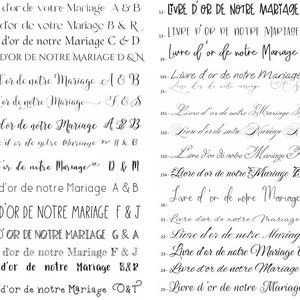 d'or de notre Mariage A & B
d'or de notre Mariage B & R
d'or de notre Mariage C & D
D'OR DE NOTRE MARIAGE D & N
d'or de notre Mariage A & B
d'or de notre Mariage F & S
d'or de notre Mariage A & B
d'or de notre Mariage
d'or de notre Mariage D & M
d'or de notre Mariage A & B
D'OR DE NOTRE MARIAGE F & J
D'OR DE NOTRE MARIAGE G & A
d'or de notre Mariage F & J
d'or de notre Mariage B&R
d'or de notre Mariage O&T
12. LIVRE D'OR DE NOTRE MARIAGE
13. LIVRE D'OR DE NOTRE MARIAGE
Livre d'or de notre Mariage
Livre d'or de notre Mariage
Livre d'or de notre Mariage
Livre d'or de notre Mariage
Livre d'or de notre Mariage
Livre d'or de notre Mariage
Livre d'or de notre Mariage
Livre d'or de notre Mariage
Livre d'or de notre Mariage
Livre d'or de notre Mariage
23. Livre d'or de notre Mariage
24. Livre d'or de notre Mariage
25. Livre d'or de notre Mariage